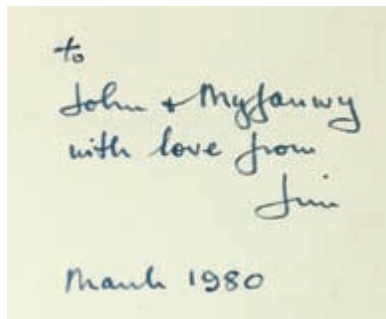 to
John + Myfanwy
with love from
Jim
March 1980